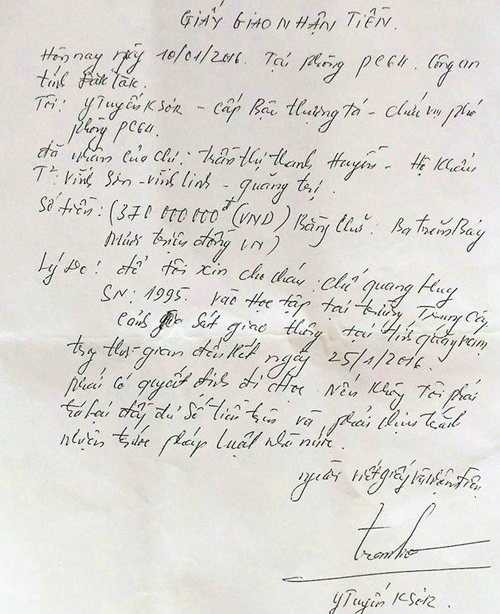 GIẤY GIAO NHẬN TIỀN.
Hôm nay ngày 10/01/2016. Tại phòng PC64. Công an
tỉnh Đắk Lắk.
Tôi: Y Tuyến KSơR - cấp Bậc thượng tá - chức vụ phó
phòng PC64.
đã nhận của chị: Trần thị thanh Huyền - Hộ khẩu
TT: Vĩnh Sơn - Vĩnh linh - quảng trị.
Số tiền: (370 000 000đ (VND) Bằng chữ: Ba trăm Bảy
Mươi triệu đồng VN)
Lý do: để tôi xin cho cháu: chế quang Huy
SN: 1995. vào học tập tại trường Trung Cấy
Cảnh Sát giao thông tại tỉnh quảng nam
thời gian đến hết ngày 25/1/2016.
phải có quyết định đi học. Nếu không tôi phải
trả lại đầy đủ số tiền trên và phải chịu trách
nhiệm trước pháp luật nhà nước.
người viết giấy và nhận tiền
Y Tuyến KSơR.